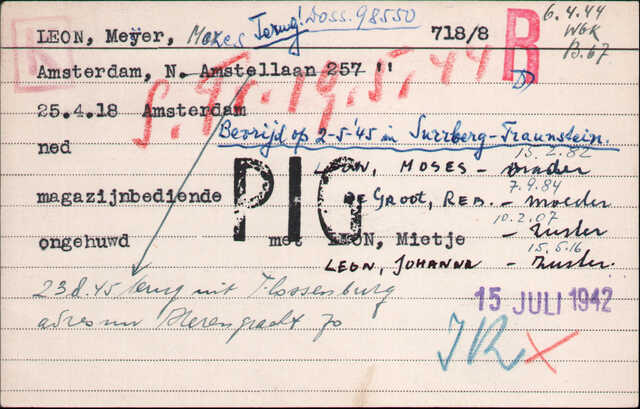 LEON, Meijer, Mozes Terug! Doss. 98550 718/8 B 6.4.44
WBK
B.67
R
Amsterdam, N. Amstellaan 257 "
S. Tr. 19.5.44
25.4.18 Amsterdam
Bevrijd op 2-5-'45 in Surrberg-Traunstein.
ned
13.2.82
LEON, MOSES - Broeder
PIG
7.9.84
magazijnbediende DE GROOT, REB. - Moeder
10.2.07
ongehuwd met LEON, Mietje - Zuster
15.5.16
LEON, JOHANNA - Zuster.
23.8.45 terug uit Flossenburg
15 JULI 1942
adres nu Herengracht 70
JR x